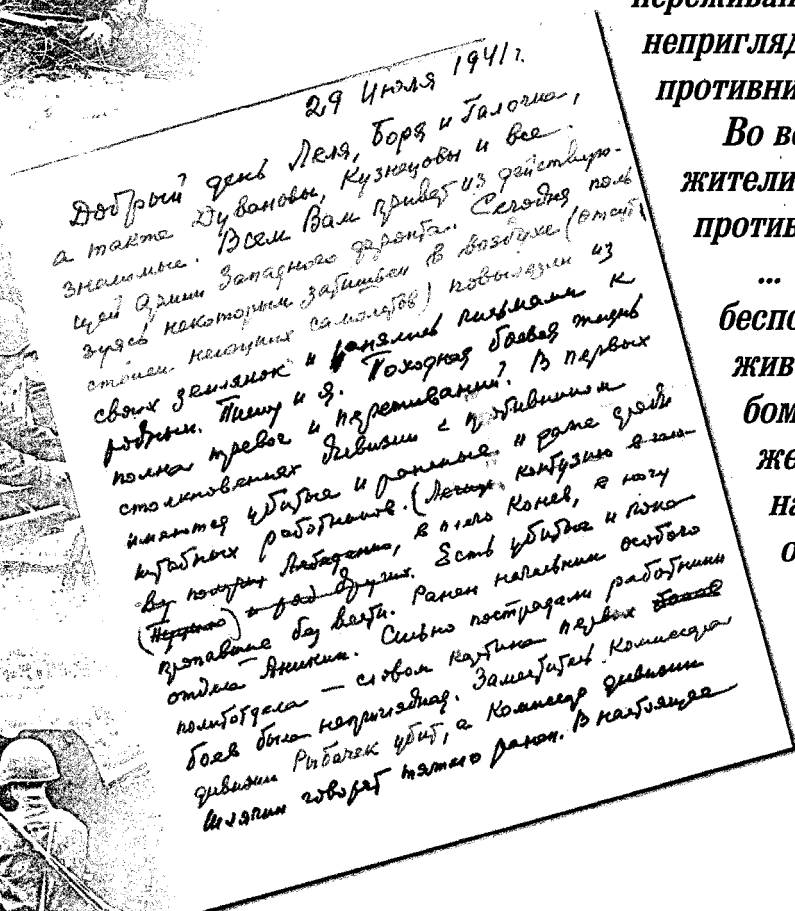 29 Июля 1941 г.
Добрый день Леля, Боря и Галочка,
а также Дувановы, Кузнецовы и все
знакомые. Всем Вам привет из действую-
щей армии Западного фронта. Сегодня поль
зуясь некоторым затишьем в воздухе (отсут
ствием немецких самолетов) повылезли из
своих землянок и занялись письмами к
родным. Пишу и я. Походная боевая жизнь
полна тревог и переживаний. В первых
столкновениях дивизии с противником
имеются убитые и раненые и даже среди
штабных работников. (контузию в голо
ву получил Лебеденко, в плечо Конев, в ногу
и ряд других. Есть убитые и
пропавшие без вести. Ранен начальник особого
отдела Аникин. Сильно пострадали работники
политотдела — словом картина первых
боев была неприглядная. Заместитель Комиссара
дивизии Рыбачек убит, а Комиссар дивизии
Шляпин говорят тяжело ранен. В настоящее
непригляд
противни
Во в
жители
против
...
беспо
жив
бом
же
на
о